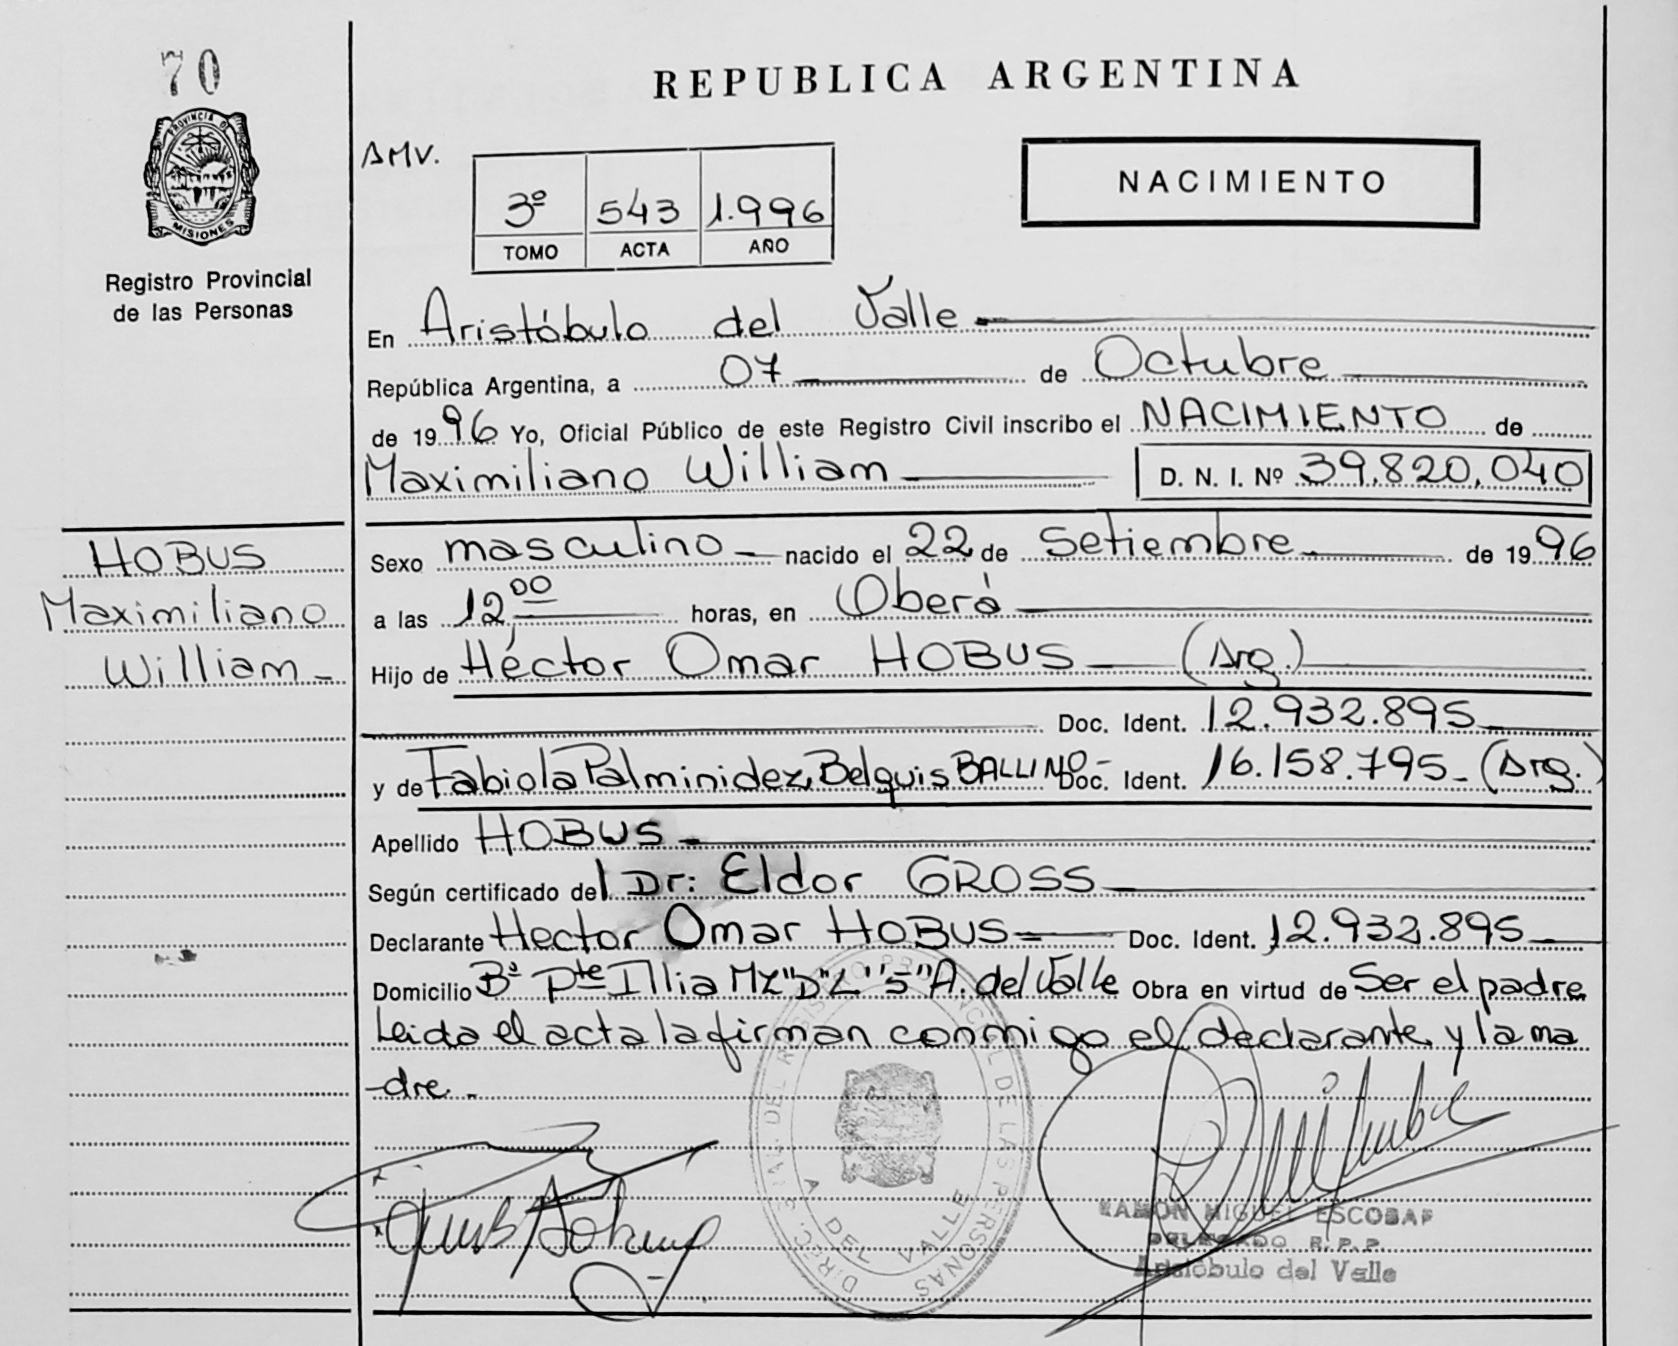 70
PROVINCIA DE
MISIONES
Registro Provincial
de las Personas
REPUBLICA ARGENTINA
AMV.
3º 543 1.996
TOMO ACTA AÑO
NACIMIENTO
En Aristóbulo del Valle
República Argentina, a 07 de Octubre
de 1996 Yo, Oficial Público de este Registro Civil inscribo el NACIMIENTO de
Maximiliano William D. N. I. Nº 39.820.040
HOBUS
Maximiliano
William
Sexo masculino nacido el 22 de Setiembre de 1996
a las 12,00 horas, en Oberá
Hijo de Héctor Omar HOBUS (Arg.)
Doc. Ident. 12.932.895
y de Fabiola Palminidez Belquis BALLINO Doc. Ident. 16.158.795 (Arg.)
Apellido HOBUS
Según certificado del Dr: Eldor GROSS
Declarante Hector Omar HOBUS Doc. Ident. 12.932.895
Domicilio Bº Pte Illia Mz "D" L "5" A. del Valle Obra en virtud de Ser el padre
Leida el acta la firman conmigo el declarante y la ma
dre.
DIREC. GRAL. DEL REGISTRO PROVINCIAL DE LAS PERSONAS
A DEL VALLE
RAMON MIGUEL ESCOBAR
DELEGADO R.P.P.
Aristóbulo del Valle